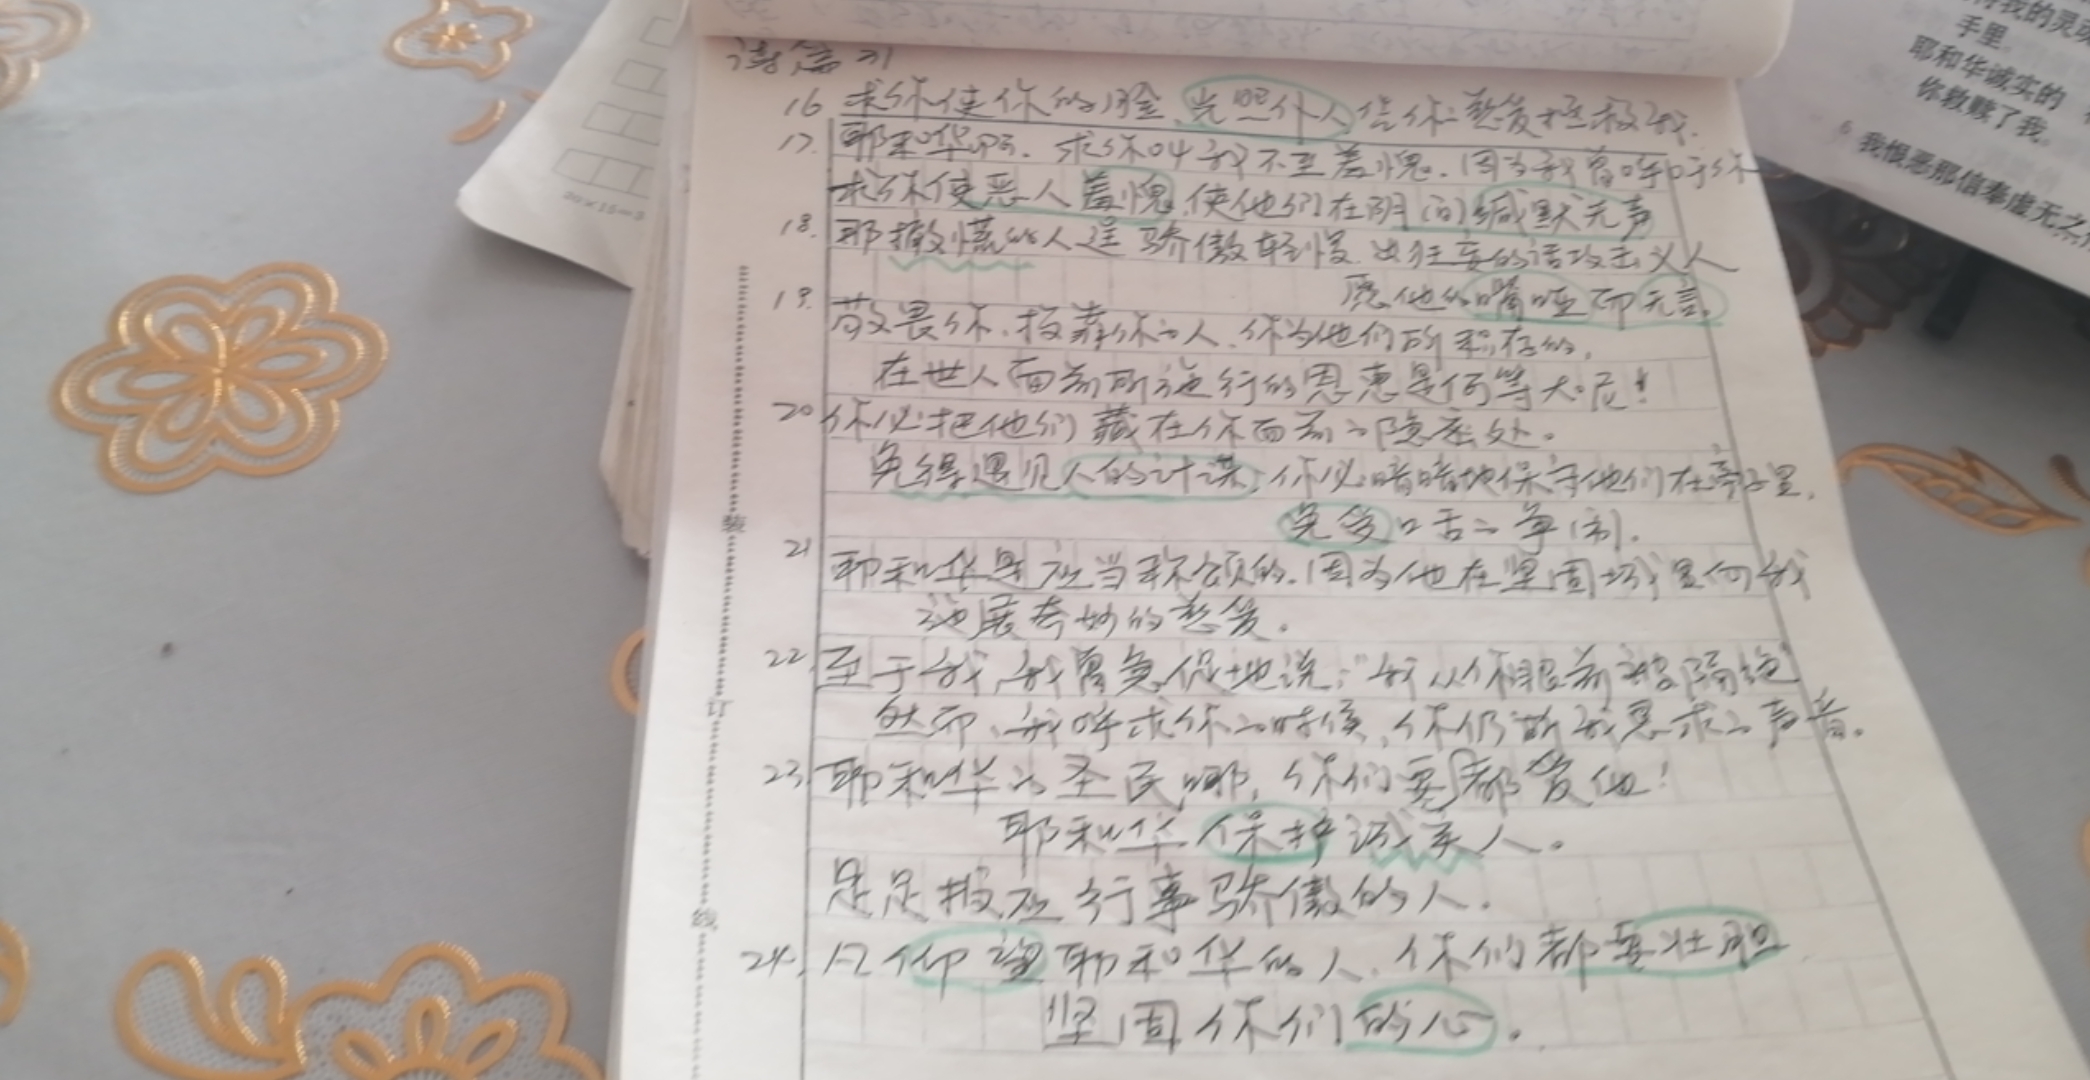 诗篇31
16 求你使你的脸光照仆人，凭你的慈爱拯救我。
17. 耶和华啊，求你叫我不至羞愧，因为我曾呼吁你
求你使恶人羞愧，使他们在阴间缄默无声
18. 那撒慌的人逞骄傲轻慢，出狂妄的话攻击义人
愿他的嘴哑而无言。
19. 敬畏你、投靠你的人，你为他们所积存的，
在世人面前所施行的恩惠是何等大呢！
20 你必把他们藏在你面前的隐密处。
免得遇见人的计谋；你必暗暗地保守他们在亭子里，
免受口舌的争闹。
21 耶和华是应当称颂的，因为他在坚固城里向我
施展奇妙的慈爱。
22. 至于我，我曾急促地说：“我从你眼前被隔绝”
然而，我呼求你的时候，你仍听我恳求的声音。
23. 耶和华的圣民哪，你们要都爱他！
耶和华保护诚实人。
足足报应行事骄傲的人。
24. 凡仰望耶和华的人，你们都要壮胆
坚固你们的心。
我的灵魂
手里
耶和华诚实的
你救赎了我。
6 我恨恶那信奉虚无之
装
订
线